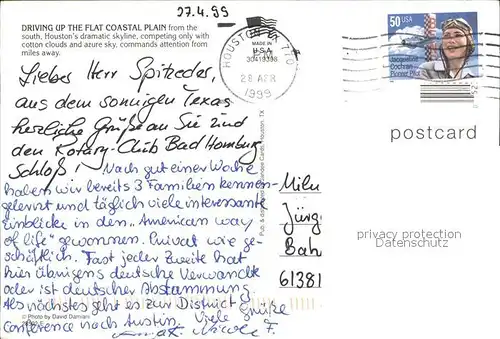 27.4.99
DRIVING UP THE FLAT COASTAL PLAIN from the
south, Houston's dramatic skyline, competing only with
cotton clouds and azure sky, commands attention from
miles away.
MADE IN
USA
30419398
HOUSTON TX 770
28 APR
1999
50 USA
Jacqueline
Cochran
Pioneer Pilot
postcard
Lieber Herr Spitzeder,
aus dem sonnigen Texas
herzliche Grüße an Sie und
den Rotary-Club Bad Homburg
Schloß! Nach gut einer Woche
haben wir bereits 3 Familien kennen-
gelernt und täglich viele interessante
Einblicke in den „American way
of life" gewonnen. Privat wie ge-
schäftlich. Fast jeder Zweite hat
hier übrigens deutsche Verwandte
oder ist deutscher Abstammung.
Als nächstes geht es zur District
Conference nach Austin. Viele Grüße
Nicole F.
© Photo by David Damiani
Houston, TX
Jürg.
Bah
61381
privacy protection
Datenschutz